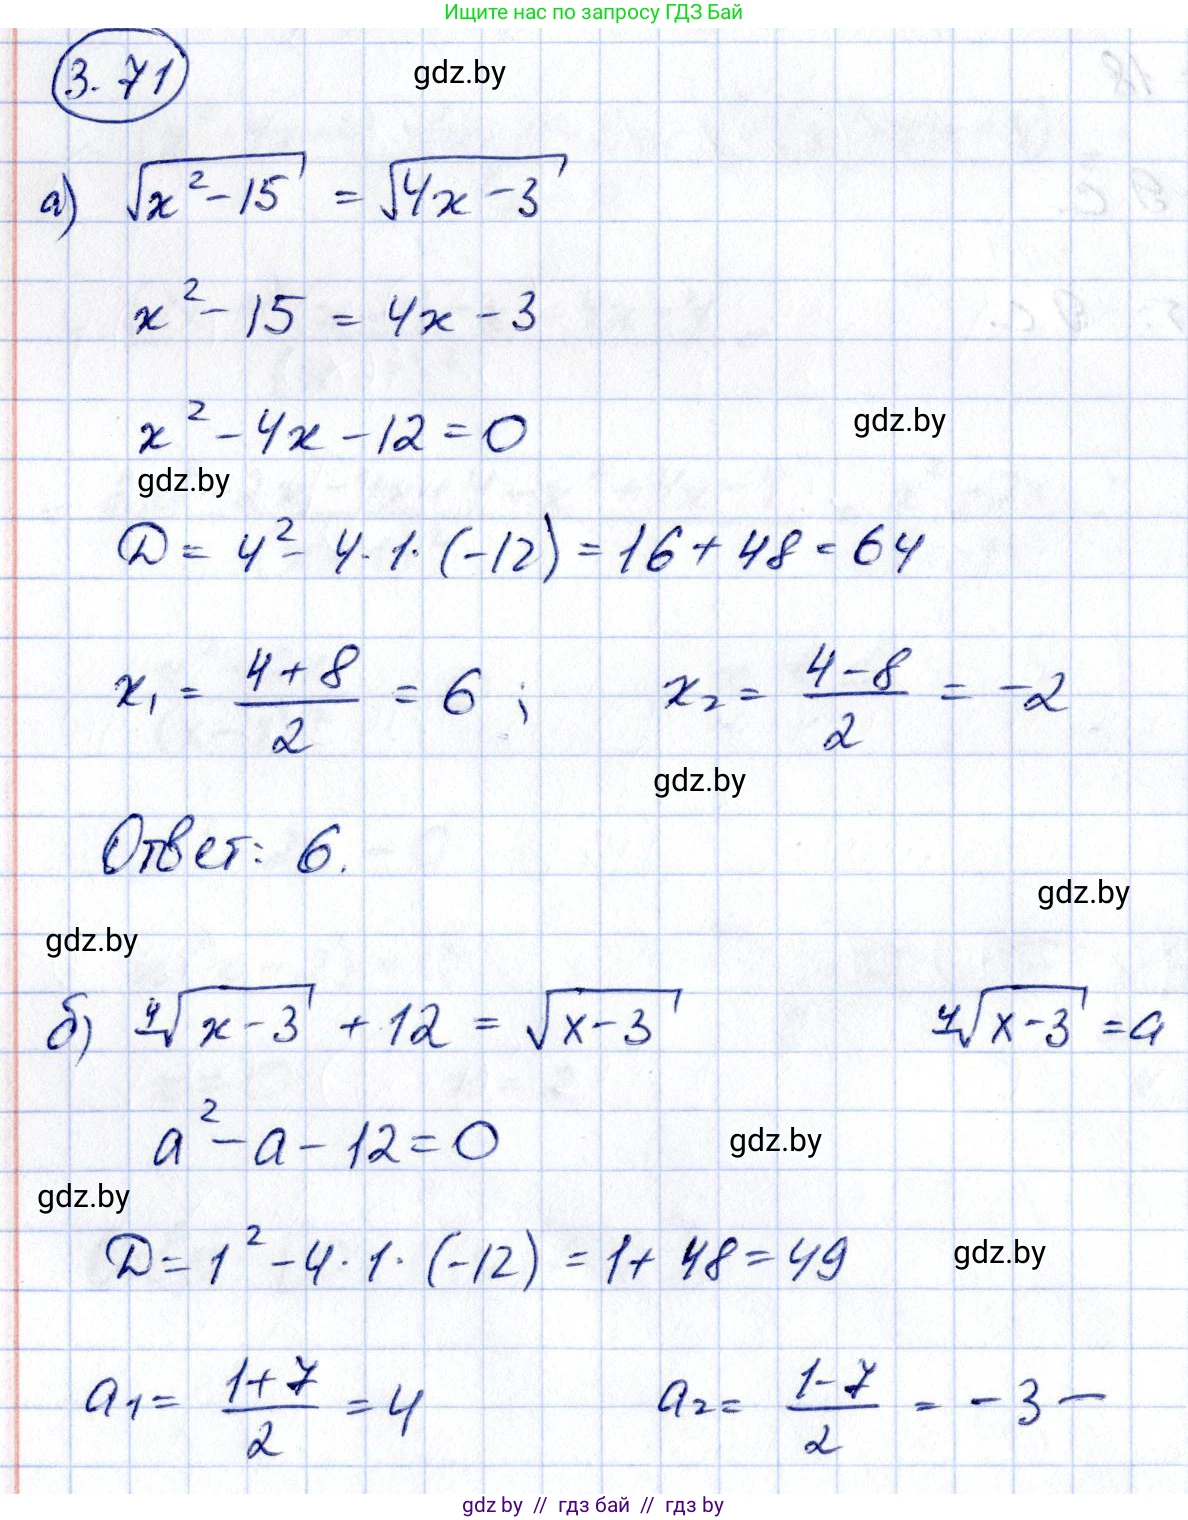 Ищите нас по запросу ГДЗ Бай
3.71
gdz.by
а) √(x² - 15) = √(4x - 3)
x² - 15 = 4x - 3
x² - 4x - 12 = 0
gdz.by
gdz.by
D = 4² - 4 · 1 · (-12) = 16 + 48 = 64
x₁ = (4 + 8)/2 = 6 ; x₂ = (4 - 8)/2 = -2
gdz.by
Ответ: 6.
gdz.by
gdz.by
б) ⁴√(x - 3) + 12 = √(x - 3) ⁴√(x - 3) = a
a² - a - 12 = 0
gdz.by
gdz.by
D = 1² - 4 · 1 · (-12) = 1 + 48 = 49
gdz.by
a₁ = (1 + 7)/2 = 4 a₂ = (1 - 7)/2 = -3 –
gdz.by // гдз бай // гдз by